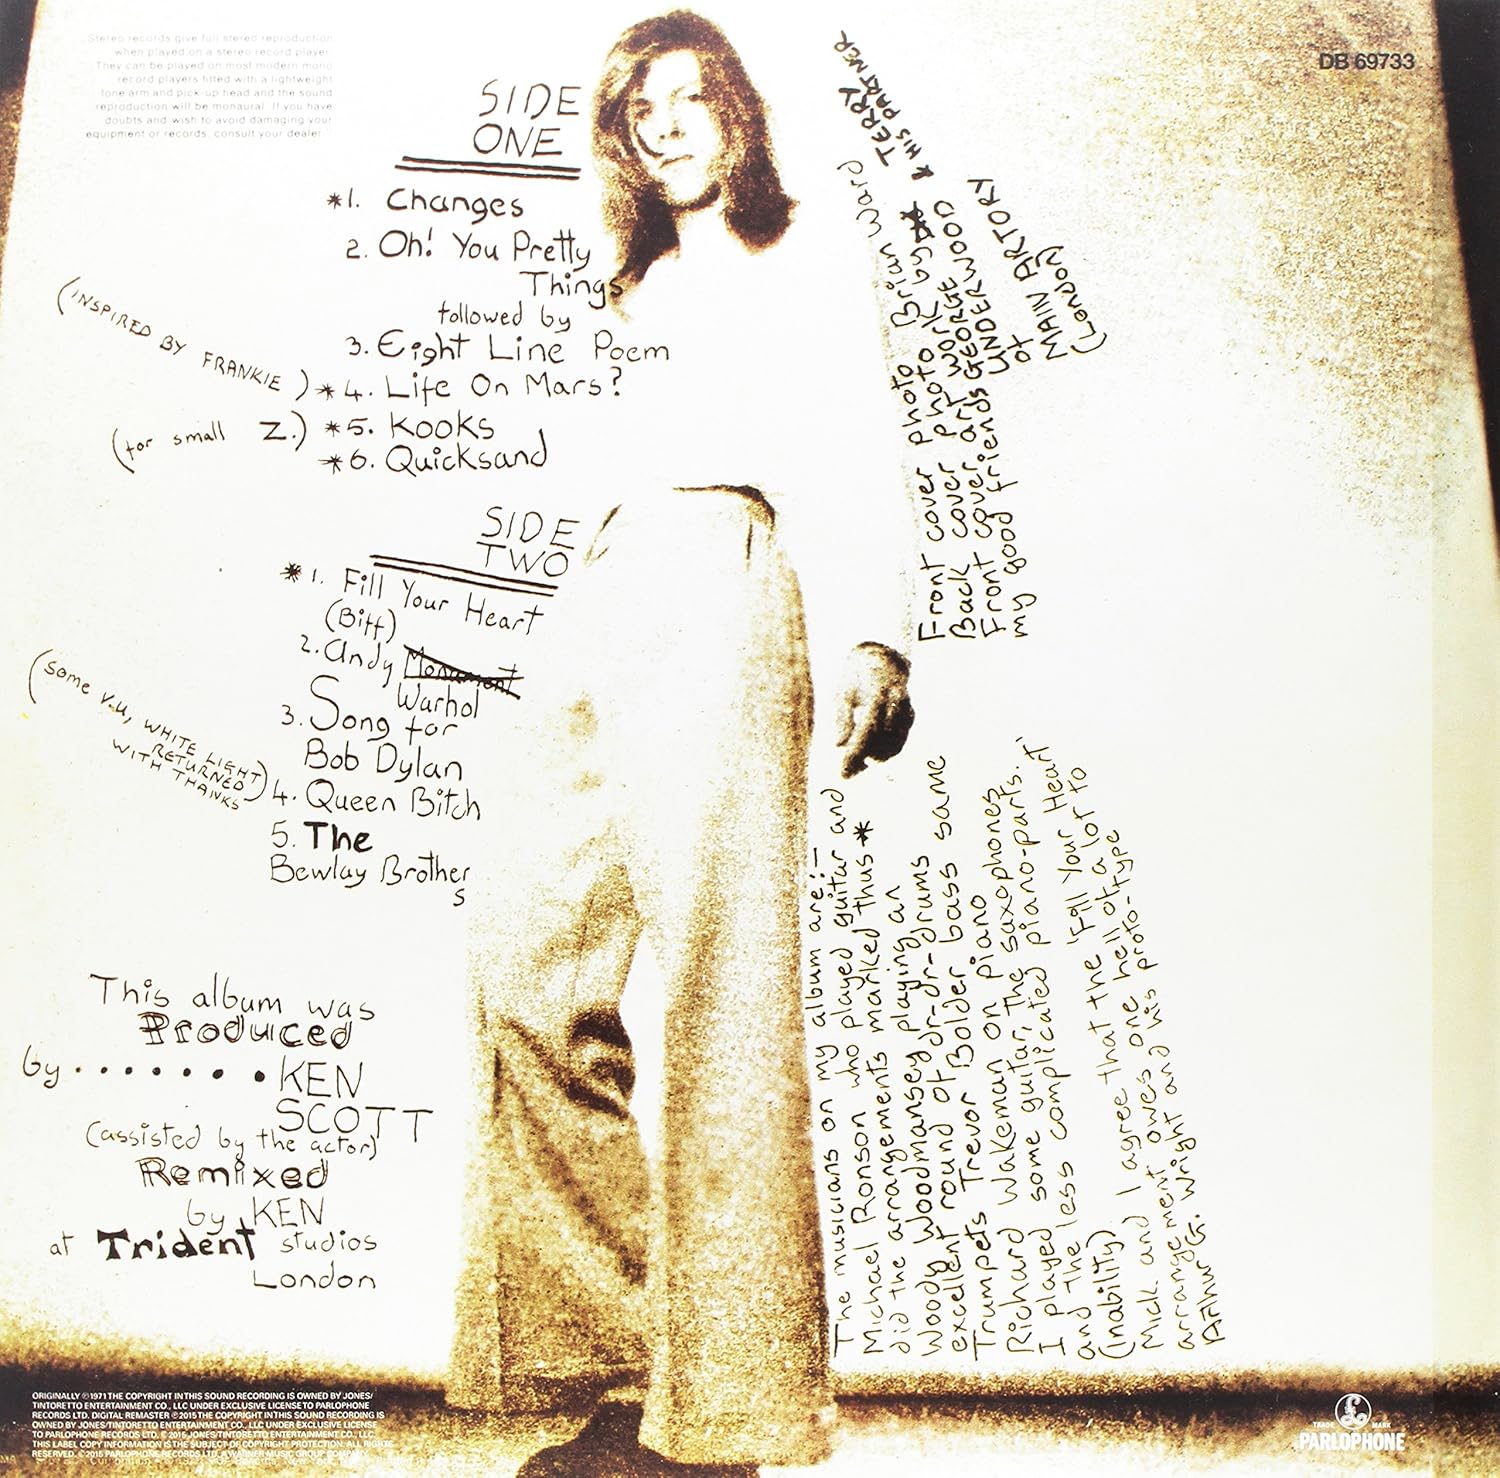 Stereo records give full stereo reproduction
when played on a stereo record player.
They can be played on most modern mono
record players fitted with a lightweight
tone arm and pick-up head and the sound
reproduction will be monaural. If you have
doubts and wish to avoid damaging your
equipment or records, consult your dealer.
DB 69733
SIDE
ONE
*1. Changes
2. Oh! You Pretty
Things
followed by
3. Eight Line Poem
(INSPIRED BY FRANKIE) *4. Life On Mars?
(for small Z.) *5. Kooks
*6. Quicksand
SIDE
TWO
*1. Fill Your Heart
(Biff)
2. Andy Monument
Warhol
3. Song for
Bob Dylan
(Some V.U, WHITE LIGHT
RETURNED
WITH THANKS)
4. Queen Bitch
5. The
Bewlay Brother
s
This album was
Produced
by........KEN
SCOTT
(assisted by the actor)
Remixed
by KEN
at Trident studios
London
Front cover photo Brian Ward
Back cover photo by TERRY
& HIS PARTNER
Front cover art work by
my good friends GEORGE UNDERWOOD
of
MAIN ARTORY
(London)
The musicians on my album are:-
Michael Ronson who played guitar and
did the arrangements marked thus *
Woody Woodmansey playing an
excellent round of dr-dr-drums
Trumpets Trevor Bolder bass same
Richard Wakeman on piano
I played some guitar, the saxophones
and the less complicated piano-parts.
(inability)
Mick and I agree that the 'Fill Your Heart'
arrangement owes one hell of a lot to
Arthur G. Wright and his proto-type
ORIGINALLY ℗ 1971 THE COPYRIGHT IN THIS SOUND RECORDING IS OWNED BY JONES/
TINTORETTO ENTERTAINMENT CO., LLC UNDER EXCLUSIVE LICENSE TO PARLOPHONE
RECORDS LTD. DIGITAL REMASTER ℗ 2015 THE COPYRIGHT IN THIS SOUND RECORDING IS
OWNED BY JONES/TINTORETTO ENTERTAINMENT CO., LLC UNDER EXCLUSIVE LICENSE
TO PARLOPHONE RECORDS LTD. © 2015 JONES/TINTORETTO ENTERTAINMENT CO., LLC.
THIS LABEL COPY INFORMATION IS THE SUBJECT OF COPYRIGHT PROTECTION. ALL RIGHTS
RESERVED. © 2015 PARLOPHONE RECORDS LTD, A WARNER MUSIC GROUP COMPANY
£
TRADE MARK
PARLOPHONE